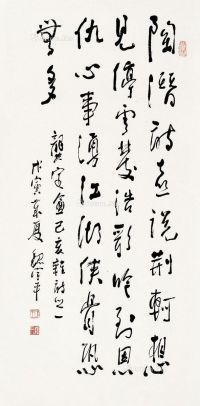 陶潛詩喜說荊軻想
見停雲發浩歌吟到恩
仇心事湧江湖俠骨恐
無多
龔定盦己亥雜詩之一
戊寅長夏